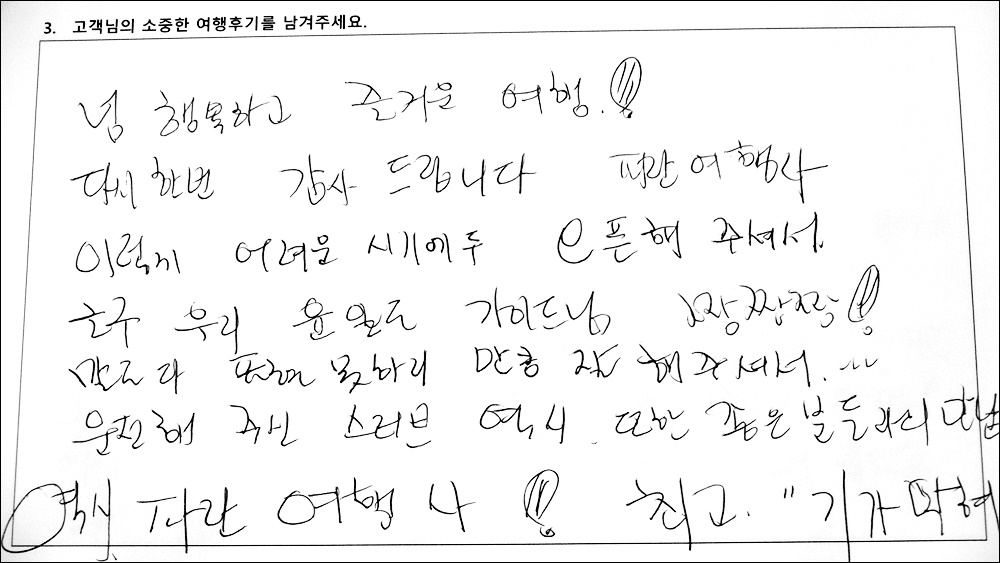 3. 고객님의 소중한 여행후기를 남겨주세요.
넘 행복하고 즐거운 여행.!!
다시 한번 감사 드립니다 파란여행사
이렇게 어려운 시기에두 오픈해 주셔서
우리 윤일도 가이드님 짱짱짱!!
말로다 표현 못하리 만큼 잘 해주셔서...
운전해 주신 스티브 역시. 또한 좋은 분들과의 만남
역시 파란 여행사 !! 최고. "기가막혀